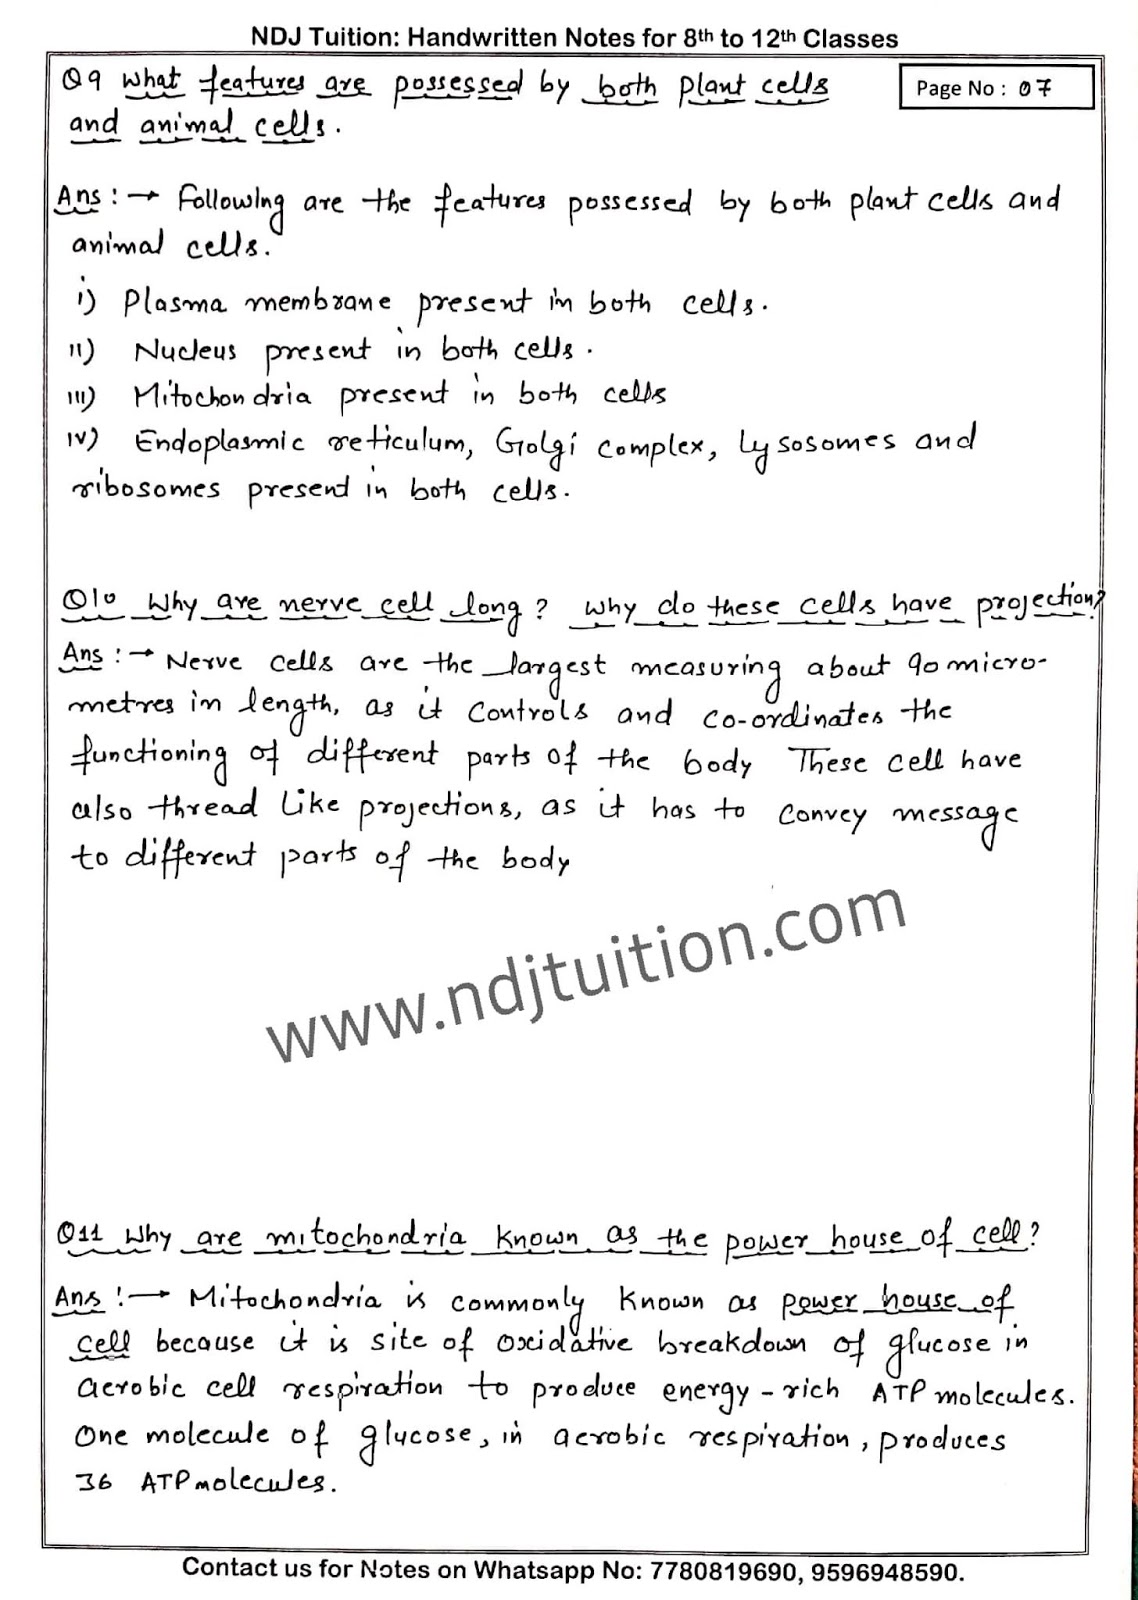 NDJ Tuition: Handwritten Notes for 8th to 12th Classes
Page No : 07
Q9 What features are possessed by both plant cells
and animal cells.
Ans :→ Following are the features possessed by both plant cells and
animal cells.
i) Plasma membrane present in both cells.
ii) Nucleus present in both cells.
iii) Mitochondria present in both cells
iv) Endoplasmic reticulum, Golgi complex, Lysosomes and
ribosomes present in both cells.
Q10 Why are nerve cell long? Why do these cells have projection?
Ans :→ Nerve cells are the largest measuring about 90 micro-
metres in length, as it controls and co-ordinates the
functioning of different parts of the body These cell have
also thread like projections, as it has to convey message
to different parts of the body
www.ndjtuition.com
Q11 Why are mitochondria known as the power house of cell?
Ans :→ Mitochondria is commonly known as power house of
cell because it is site of oxidative breakdown of glucose in
aerobic cell respiration to produce energy-rich ATP molecules.
One molecule of glucose, in aerobic respiration, produces
36 ATP molecules.
Contact us for Notes on Whatsapp No: 7780819690, 9596948590.